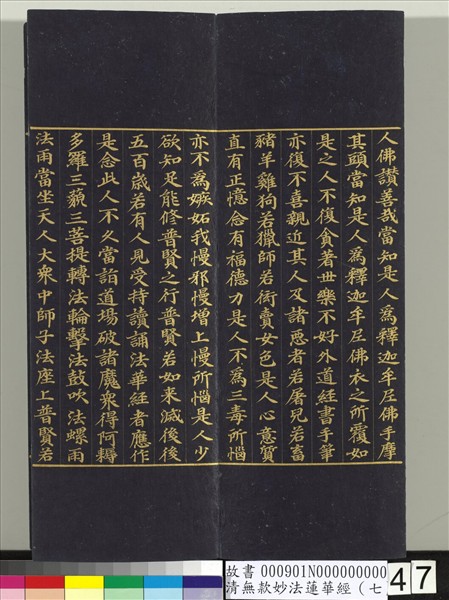 人佛讚善哉當知是人為釋迦牟尼佛手摩
其頭當知是人為釋迦牟尼佛衣之所覆如
是之人不復貪著世樂不好外道經書手筆
亦復不喜親近其人及諸惡者若屠兒若畜
豬羊雞狗若獵師若衒賣女色是人心意質
直有正憶念有福德力是人不為三毒所惱
亦不為嫉妬我慢邪慢增上慢所惱是人少
欲知足能修普賢之行普賢若如來滅後後
五百歲若有人見受持讀誦法華經者應作
是念此人不久當詣道場破諸魔眾得阿耨
多羅三藐三菩提轉法輪擊法鼓吹法螺雨
法雨當坐天人大眾中師子法座上普賢若
故書 000901N000000000
清無款妙法蓮華經（七
47